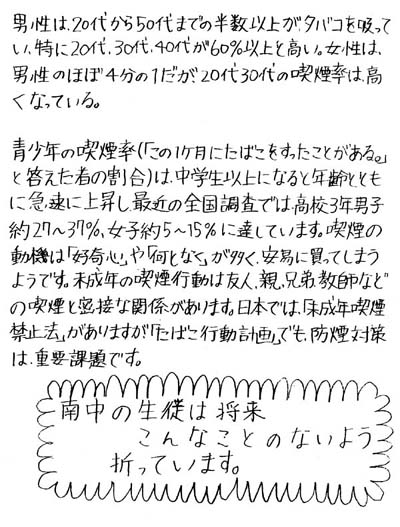 男性は、20代から50代までの半数以上がタバコを吸って
い、特に20代、30代、40代が60%以上と高い。女性は、
男性のほぼ4分の1だが20代30代の喫煙率は、高
くなっている。
青少年の喫煙率(「この1ヶ月にたばこをすったことがある。」
と答えた者の割合)は、中学生以上になると年齢ととも
に急速に上昇し最近の全国調査では、高校3年男子
約27~37%、女子約5~15%に達しています。喫煙の
動機は「好奇心」や「何となく」が多く、安易に買ってしまう
ようです。未成年の喫煙行動は友人、親、兄弟教師など
の喫煙と密接な関係があります。日本では、「未成年喫煙
禁止法」がありますが「たばこ行動計画」でも、防煙対策
は、重要課題です。
南中の生徒は将来
こんなことのないよう
祈っています。